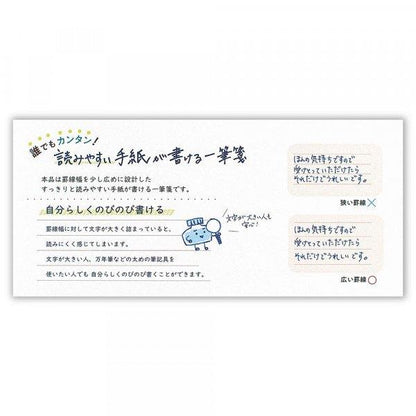 誰でもカンタン!
読みやすい手紙が書ける一筆箋
本品は罫線幅を少し広めに設計した
すっきりと読みやすい手紙が書ける一筆箋です。
自分らしくのびのび書ける
罫線幅に対して文字が大きく詰まっていると、
読みにくく感じてしまいます。
文字が大きい人、万年筆などの太めの筆記具を
使いたい人でも 自分らしくのびのび書くことができます。
文字が大きい人も
安心!
ほんの気持ちですので
受けとっていただけたら
それだけでうれしいです。
狭い罫線 ×
ほんの気持ちですので
受けとっていただけたら
それだけでうれしいです。
広い罫線 ○